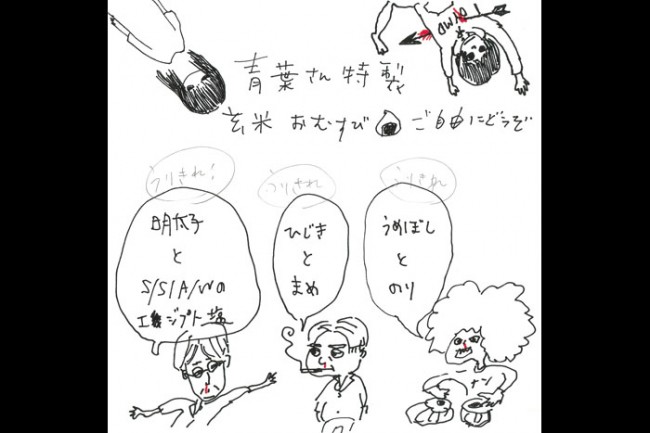 青葉さん特製
玄米 おむすび ご自由にどうぞ
うりきれ!
うりきれ
うりきれ
明太子
と
S/S/A/Wの
エジプト塩
ひじき
と
まめ
うめぼし
と
のり
ナン